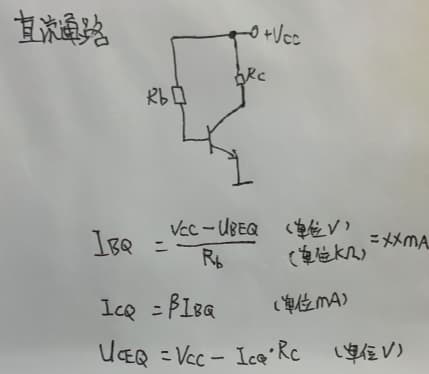 直流通路
+VCC
Rb
Rc
IBQ = VCC - UBEQ / Rb (单位V) (单位kΩ) = xxmA
ICQ = βIBQ (单位mA)
UCEQ = VCC - ICQ·RC (单位V)